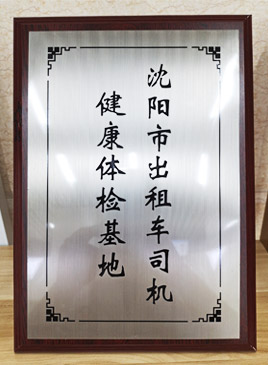 沈阳市出租车司机
健康体检基地